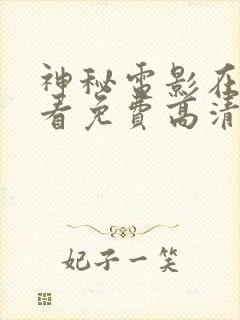 神秘雷影在
看免费高清
妃子一笑